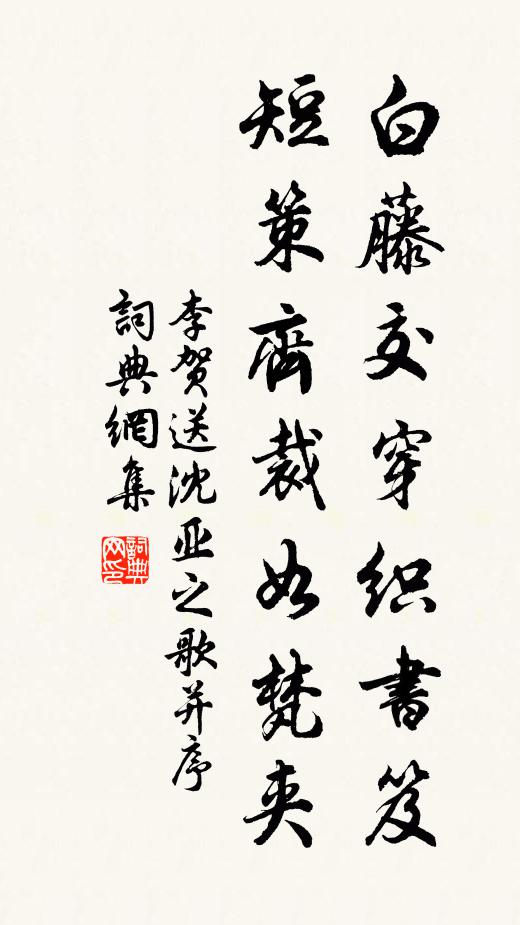 白藤交穿织書笈
短策齊裁如梵夹
李贺送沈亚之歌并序
詞典網集
詞典网印